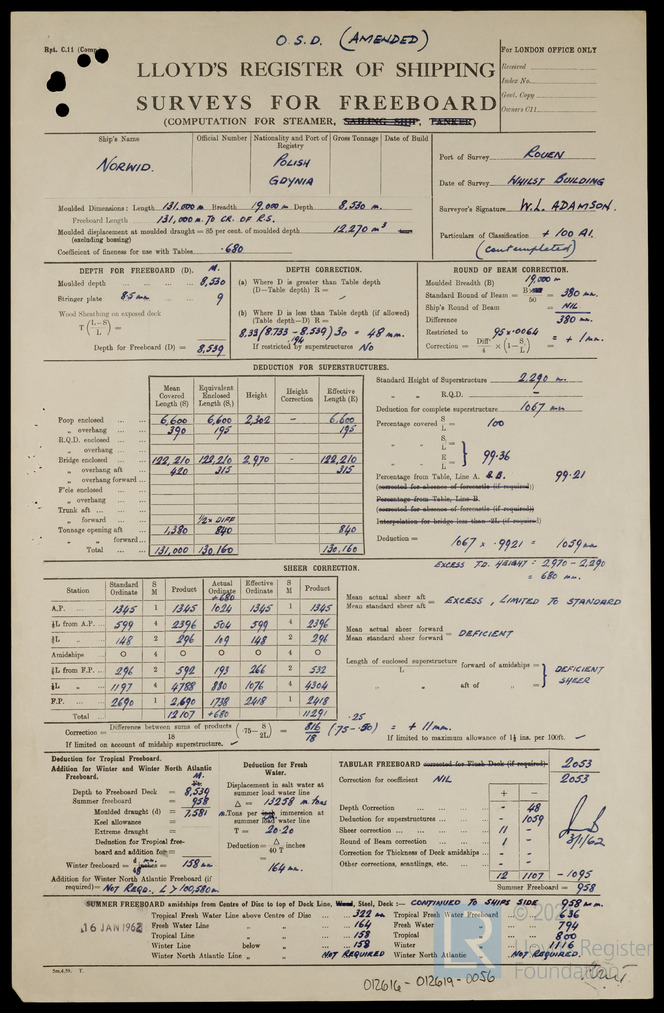 O.S.D. (AMENDED)
Rpt. C.11 (Comp
LLOYD'S REGISTER OF SHIPPING
SURVEYS FOR FREEBOARD
(COMPUTATION FOR STEAMER, SAILING SHIP, TANKER)
For LONDON OFFICE ONLY
Received
Index No.
Govt. Copy
Owners C11
Ship's Name Official Number Nationality and Port of Registry Gross Tonnage Date of Build
NORWID. POLISH GDYNIA
Port of Survey ROUEN
Date of Survey WHILST BUILDING
Surveyor's Signature W.L. ADAMSON.
Particulars of Classification + 100 A1.
(contemplated)
Moulded Dimensions: Length 131.000 m Breadth 19.000 m Depth 8.530 m.
Freeboard Length 131.000 m. TO CR. OF R.S.
Moulded displacement at moulded draught = 85 per cent. of moulded depth 12.270 m³
(excluding bossing)
Coefficient of fineness for use with Tables .680
DEPTH FOR FREEBOARD (D). M.
Moulded depth 8,530
Stringer plate 8.5 mm 9
Wood Sheathing on exposed deck
T (L–S)/L =
Depth for Freeboard (D) = 8,539
DEPTH CORRECTION.
(a) Where D is greater than Table depth
(D—Table depth) R =
(b) Where D is less than Table depth (if allowed)
(Table depth—D) R =
8.33 (8.733 - 8.539) 30 = 48 mm.
.194
If restricted by superstructures NO
ROUND OF BEAM CORRECTION.
Moulded Breadth (B) 19,000 m
Standard Round of Beam = B/50 = 380 mm.
Ship's Round of Beam = NIL
Difference 380 mm.
Restricted to 95 x .0064
Correction = Diff/4 × (1–S/L) = = + 1 mm.
DEDUCTION FOR SUPERSTRUCTURES.
Mean Covered Length (S) Equivalent Enclosed Length (S₁) Height Height Correction Effective Length (E)
Poop enclosed 6,600 6,600 2,302 - 6,600
„ overhang 390 195 195
R.Q.D. enclosed
„ overhang
Bridge enclosed 122,210 122,210 2,970 - 122,210
„ overhang aft 420 315 315
„ overhang forward
F'cle enclosed
„ overhang
Trunk aft
„ forward 1/2 x DIFF
Tonnage opening aft 1,380 840 840
„ „ forward
Total 131,000 130,160 130,160
Standard Height of Superstructure 2,290 m.
„ „ R.Q.D. -
Deduction for complete superstructure 1067 mm
Percentage covered S/L = 100
„ „ S₁/L =
„ „ E/L = } 99.36
Percentage from Table, Line A. B.B. 99.21
(corrected for absence of forecastle (if required))
Percentage from Table, Line B.
(corrected for absence of forecastle (if required))
Interpolation for bridge less than ·2L (if required)
Deduction = 1067 x .9921 = 1059 mm
EXCESS T.D. HEIGHT = 2,970 - 2,290
= 680 mm.
SHEER CORRECTION.
Station Standard Ordinate S M Product Actual Ordinate +680 Effective Ordinate S M Product
A.P. 1345 1 1345 1024 1345 1 1345
⅙L from A.P. 599 4 2396 504 599 4 2396
⅓L „ 148 2 296 109 148 2 296
Amidships 0 4 0 0 0 4 0
⅓L from F.P. 296 2 592 193 266 2 532
⅙L „ 1197 4 4788 880 1076 4 4304
F.P. 2690 1 2,690 1738 2418 1 2418
Total 12107 +680 11291
Mean actual sheer aft / Mean standard sheer aft = EXCESS, LIMITED TO STANDARD
Mean actual sheer forward / Mean standard sheer forward = DEFICIENT
Length of enclosed superstructure/L forward of amidships =
„ „ aft of „ = } DEFICIENT SHEER
Correction = Difference between sums of products/18 (·75–S/2L) = 816/18 (.75-.50) = + 11 mm.
.25
If limited on account of midship superstructure.
If limited to maximum allowance of 1½ ins. per 100ft.
Deduction for Tropical Freeboard.
Addition for Winter and Winter North Atlantic Freeboard. M.
Depth to Freeboard Deck = 8,539
Summer freeboard = 958
Moulded draught (d) = 7,581
Keel allowance =
Extreme draught =
Deduction for Tropical freeboard and addition for
Winter freeboard = d/48 = 158 mm
Addition for Winter North Atlantic Freeboard (if
required) = NOT REQD. L > 100,580m.
Deduction for Fresh Water.
Displacement in salt water at summer load water line
Δ = 13258 m.tons
m.Tons per immersion at summer load water line
T = 20.20
Deduction = Δ/40 T
= 164 mm.
TABULAR FREEBOARD corrected for Flush Deck (if required) 2053
Correction for coefficient NIL 2053
+ –
Depth Correction - 48
Deduction for superstructures - 1059
Sheer correction 11 -
Round of Beam correction 1 -
Correction for Thickness of Deck amidships - -
Other corrections, scantlings, etc. - -
12 1107 -1095
3/1/62
Summer Freeboard = 958
SUMMER FREEBOARD amidships from Centre of Disc to top of Deck Line, Wood, Steel, Deck :— CONTINUED TO SHIPS SIDE 958 mm.
16 JAN 1962
Tropical Fresh Water Line above Centre of Disc 322 mm Tropical Fresh Water Freeboard 636
Fresh Water Line „ „ 164 Fresh Water „ 794
Tropical Line „ „ 158 Tropical „ 800
Winter Line below „ 158 Winter „ 1116
Winter North Atlantic Line „ „ NOT REQUIRED Winter North Atlantic „ NOT REQUIRED.
5m.4.59. T.
012616-012619-0056
LR
Lloyd's Register
Foundation